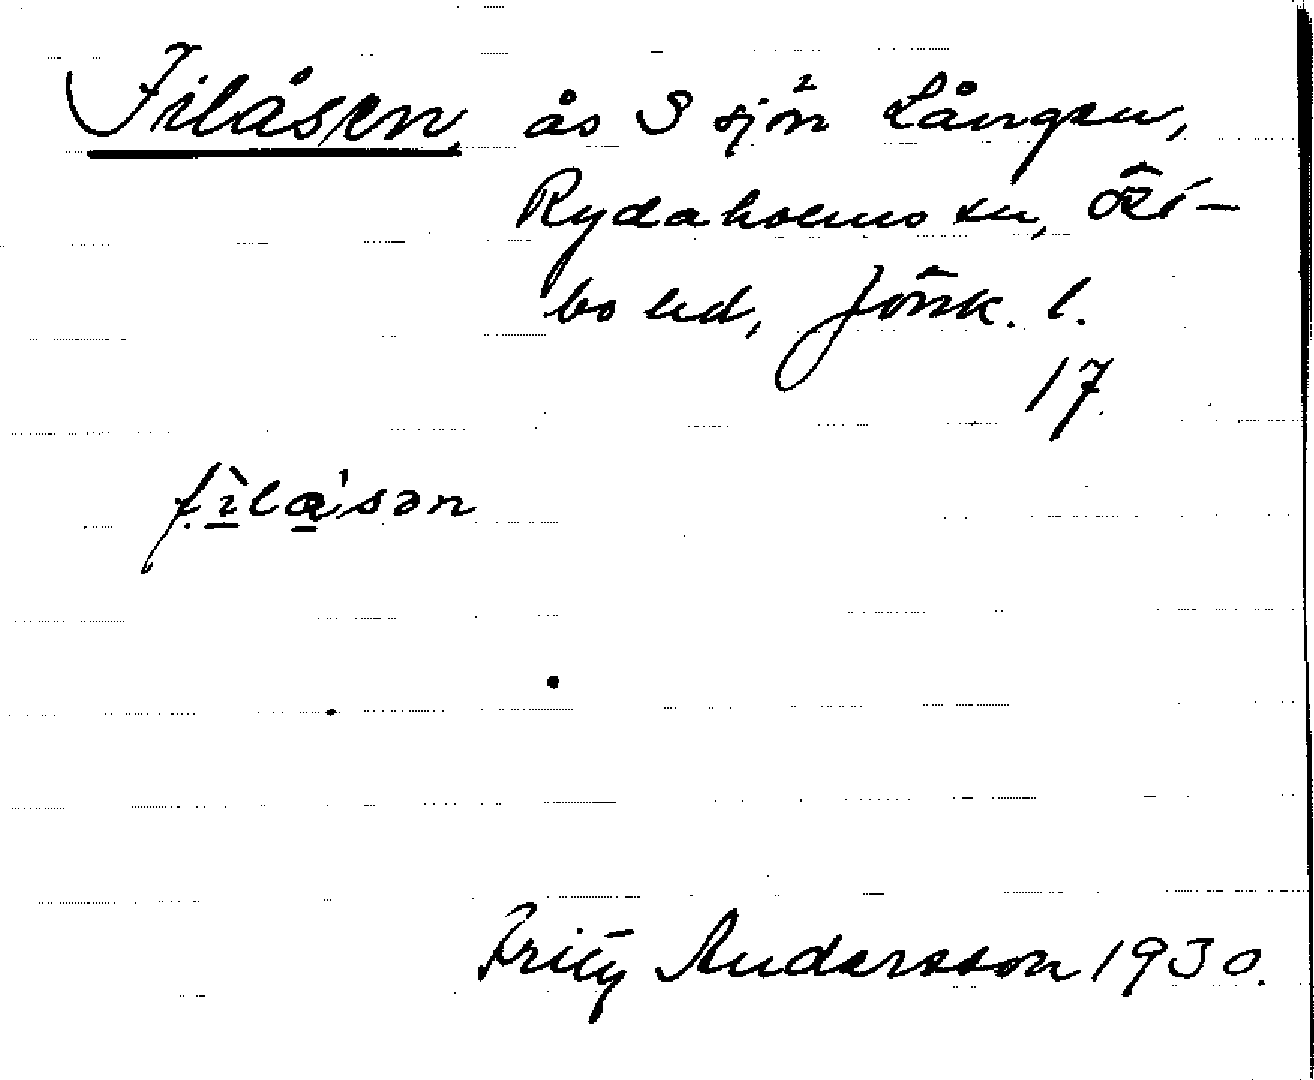 Filåsen, ås S sjön Lången,
Rydaholms sn, Öst-
bo hd, Jönk. l.
17.
fìlɑ̀'sən
Fritz Andersson 1930.